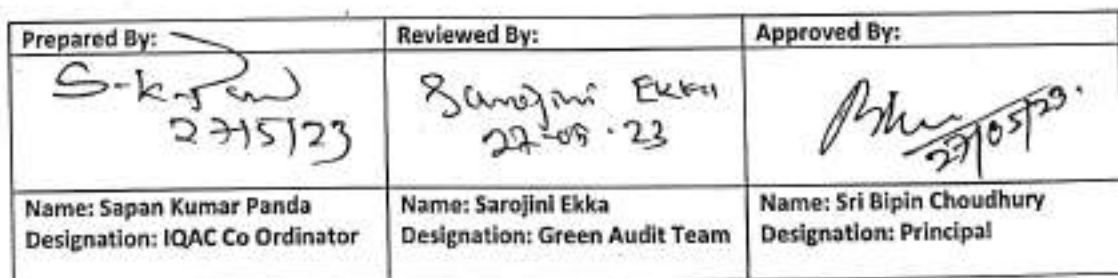 Prepared By:
Reviewed By:
Approved By:
S-k-Pan
27/5/23
Sarojini Ekka
27-05-23
27/05/23.
Name: Sapan Kumar Panda
Designation: IQAC Co Ordinator
Name: Sarojini Ekka
Designation: Green Audit Team
Name: Sri Bipin Choudhury
Designation: Principal